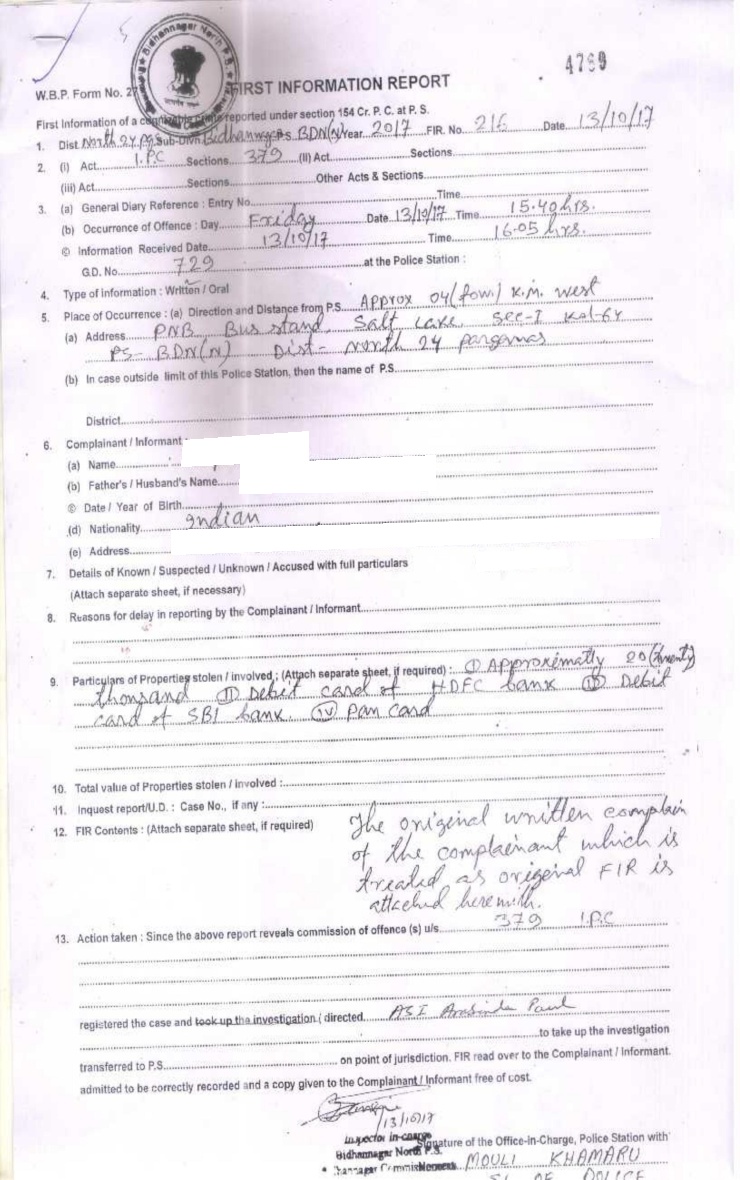 5
Bidhannagar North P.S.
4769
W.B.P. Form No. 27
FIRST INFORMATION REPORT
First Information of a cognizable crime reported under section 154 Cr. P. C. at P. S.
1. Dist. North 24 Pgs Sub-Divn Bidhannagar P.S. BDN(N) Year 2017 FIR. No. 216 Date 13/10/17
2. (i) Act I.P.C Sections 379 (II) Act Sections
(iii) Act Sections Other Acts & Sections
3. (a) General Diary Reference : Entry No Time
(b) Occurrence of Offence : Day Friday Date 13/10/17 Time 15.40 hrs.
© Information Received Date 13/10/17 Time 16.05 hrs.
G.D. No 729 at the Police Station :
4. Type of information : Written / Oral
5. Place of Occurrence : (a) Direction and Distance from P.S. Approx 04 (four) K.M. west
(a) Address PNB Bus stand, Salt Lake, Sec-I Kol-64
PS- BDN(N) Dist- North 24 parganas
(b) In case outside limit of this Police Station, then the name of P.S.
District
6. Complainant / Informant
(a) Name
(b) Father's / Husband's Name
© Date / Year of Birth
(d) Nationality Indian
(e) Address
7. Details of Known / Suspected / Unknown / Accused with full particulars
(Attach separate sheet, if necessary)
8. Reasons for delay in reporting by the Complainant / Informant
9. Particulars of Properties stolen / involved : (Attach separate sheet, if required) : (I) Approximatly 20 (twenty)
thousand (II) Debit card of HDFC bank (III) Debit
card of SBI bank (IV) Pan Card
10. Total value of Properties stolen / involved :
11. Inquest report/U.D. : Case No., if any :
12. FIR Contents : (Attach separate sheet, if required) The original written complain
of the complainant which is
treated as original FIR is
attached herewith.
13. Action taken : Since the above report reveals commission of offence (s) u/s 379 I.P.C
registered the case and took up the investigation / directed ASI Arabinda Paul
to take up the investigation
transferred to P.S. on point of jurisdiction. FIR read over to the Complainant / Informant.
admitted to be correctly recorded and a copy given to the Complainant / Informant free of cost.
13/10/17
Inspector in-charge
Signature of the Office-in-Charge, Police Station with
Bidhannagar North P.S.
MOULI KHAMARU
SI OF POLICE